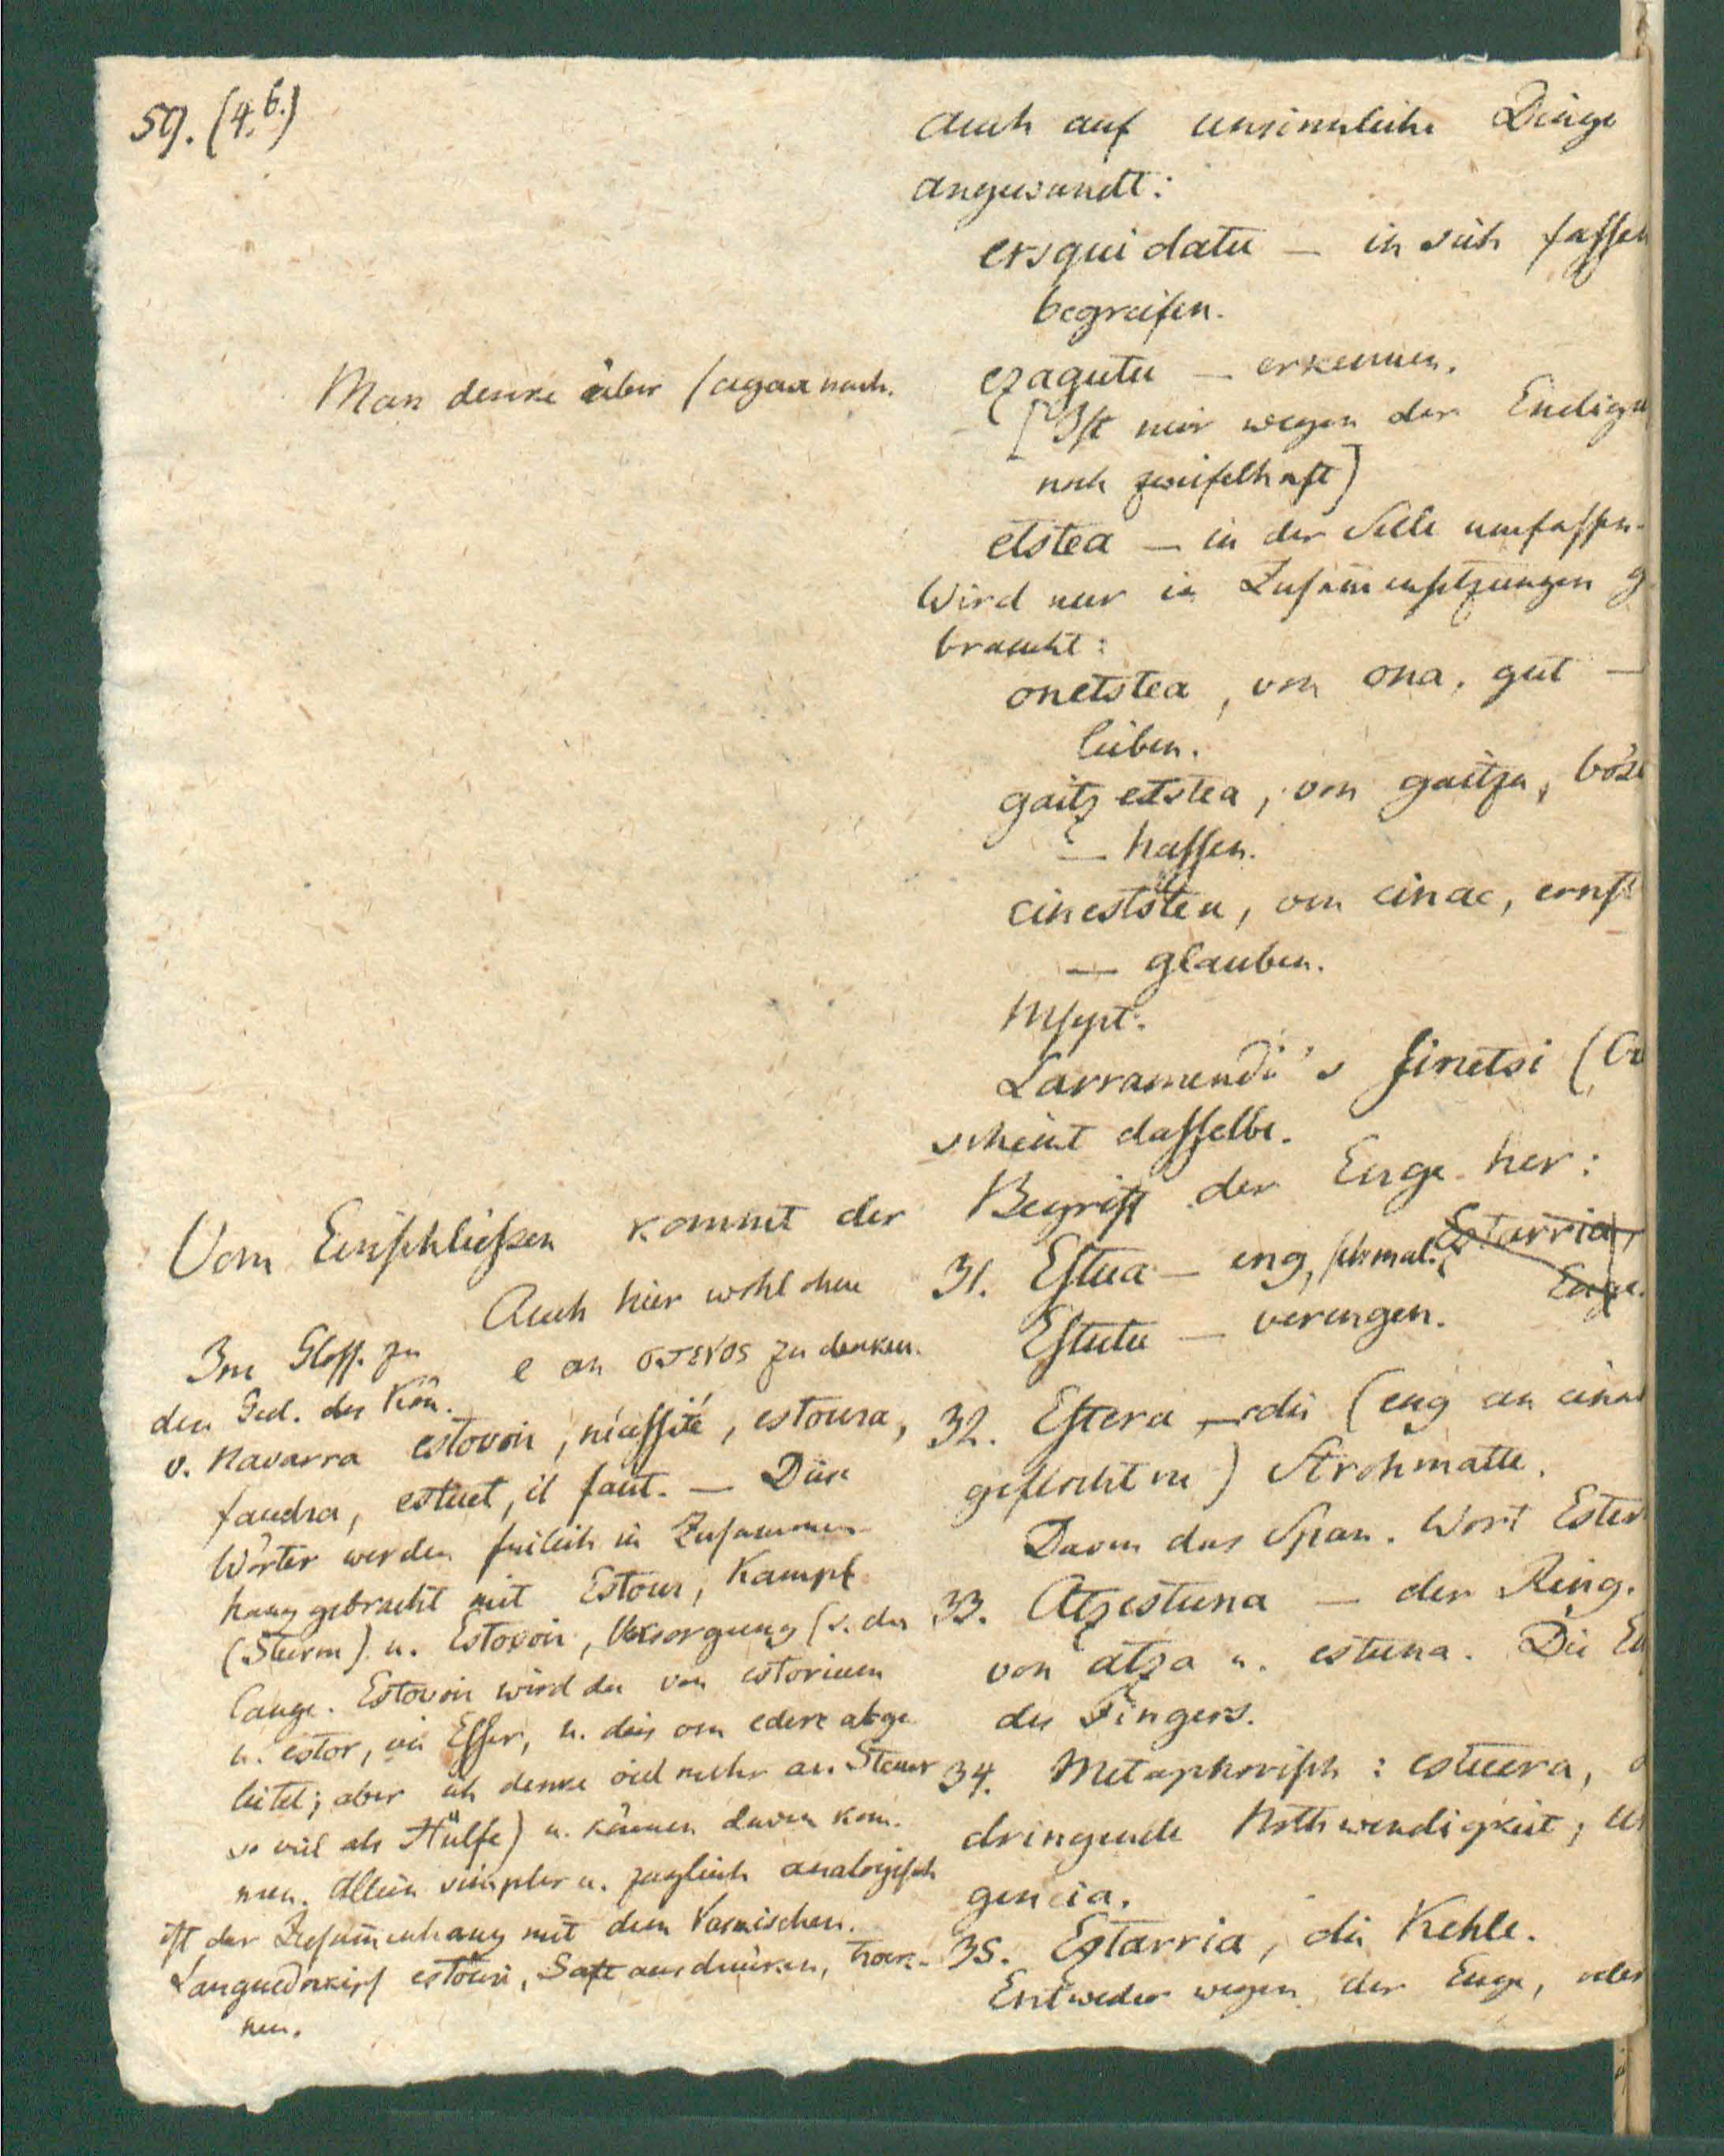 59. (4.b.)
auch auf unsinnliche Dinge
angewandt:
ersquidatu — in sich fassen
begreifen.
Man denke aber sagax nach.
ezagutu — erkennen.
[Ist mir wegen der Endigu
noch zweifelhaft]
etstea — in der Seele umfassen.
Wird nur in Zusammensetzungen g
braucht:
onetstea, von ona, gut —
lieben.
gaitzetstea, von gaitza, böse
— hassen.
cinestetea, von cinac, ernst
— glauben.
Mscpt.
Larramendi's sinetsi (Cr
scheint dasselbe.
Vom Einschließen kommt der Begriff der Enge her:
31. Estua — eng, schmal. Estarria,
Enge.
Estutu — verengen.
Auch hier wohl ohne
e an στενος zu denken.
32. Estera, die (eng an einan
geflochtene) Strohmatte.
Davon das Span. Wort Ester
33. Atzestuna — der Ring.
von atza u. estuna. Die En
des Fingers.
34. Metaphorisch: estuera, d
dringende Nothwendigkeit, ur
gencia.
35. Estarria, die Kehle.
Entweder wegen der Enge, oder
Im Gloss. zu
den Ged. des Kön.
v. Navarra estovoir, nécessité, estoura,
faudra, estuet, il faut. — Diese
Wörter werden freilich in Zusammen-
hang gebracht mit Estour, Kampf
(Sturm) u. Estovoir, Versorgung (s. du
Cange. Estovoir wird da von estorium
u. estor, ein Esser, u. dies von edere abge
leitet; aber ich denke viel mehr an Steuer
so viel als Hülfe) u. können davon kom-
men. Allein simpler u. zugleich analogisch
ist der Zusammenhang mit dem Vaskischen.
Languedokisch estouri, Saft ausdrücken, trock-
nen.